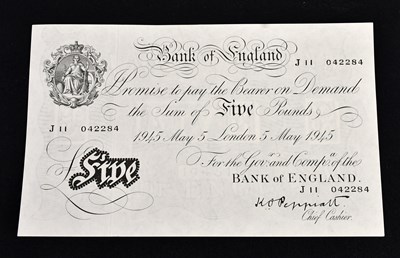 Bank of England
J 11 042284
I Promise to pay the Bearer on Demand
the Sum of Five Pounds
J 11 042284
1945 May 5 London 5 May 1945
For the Govr. and Compa. of the
BANK OF ENGLAND.
J 11 042284
Five
K O Peppiatt
Chief Cashier.